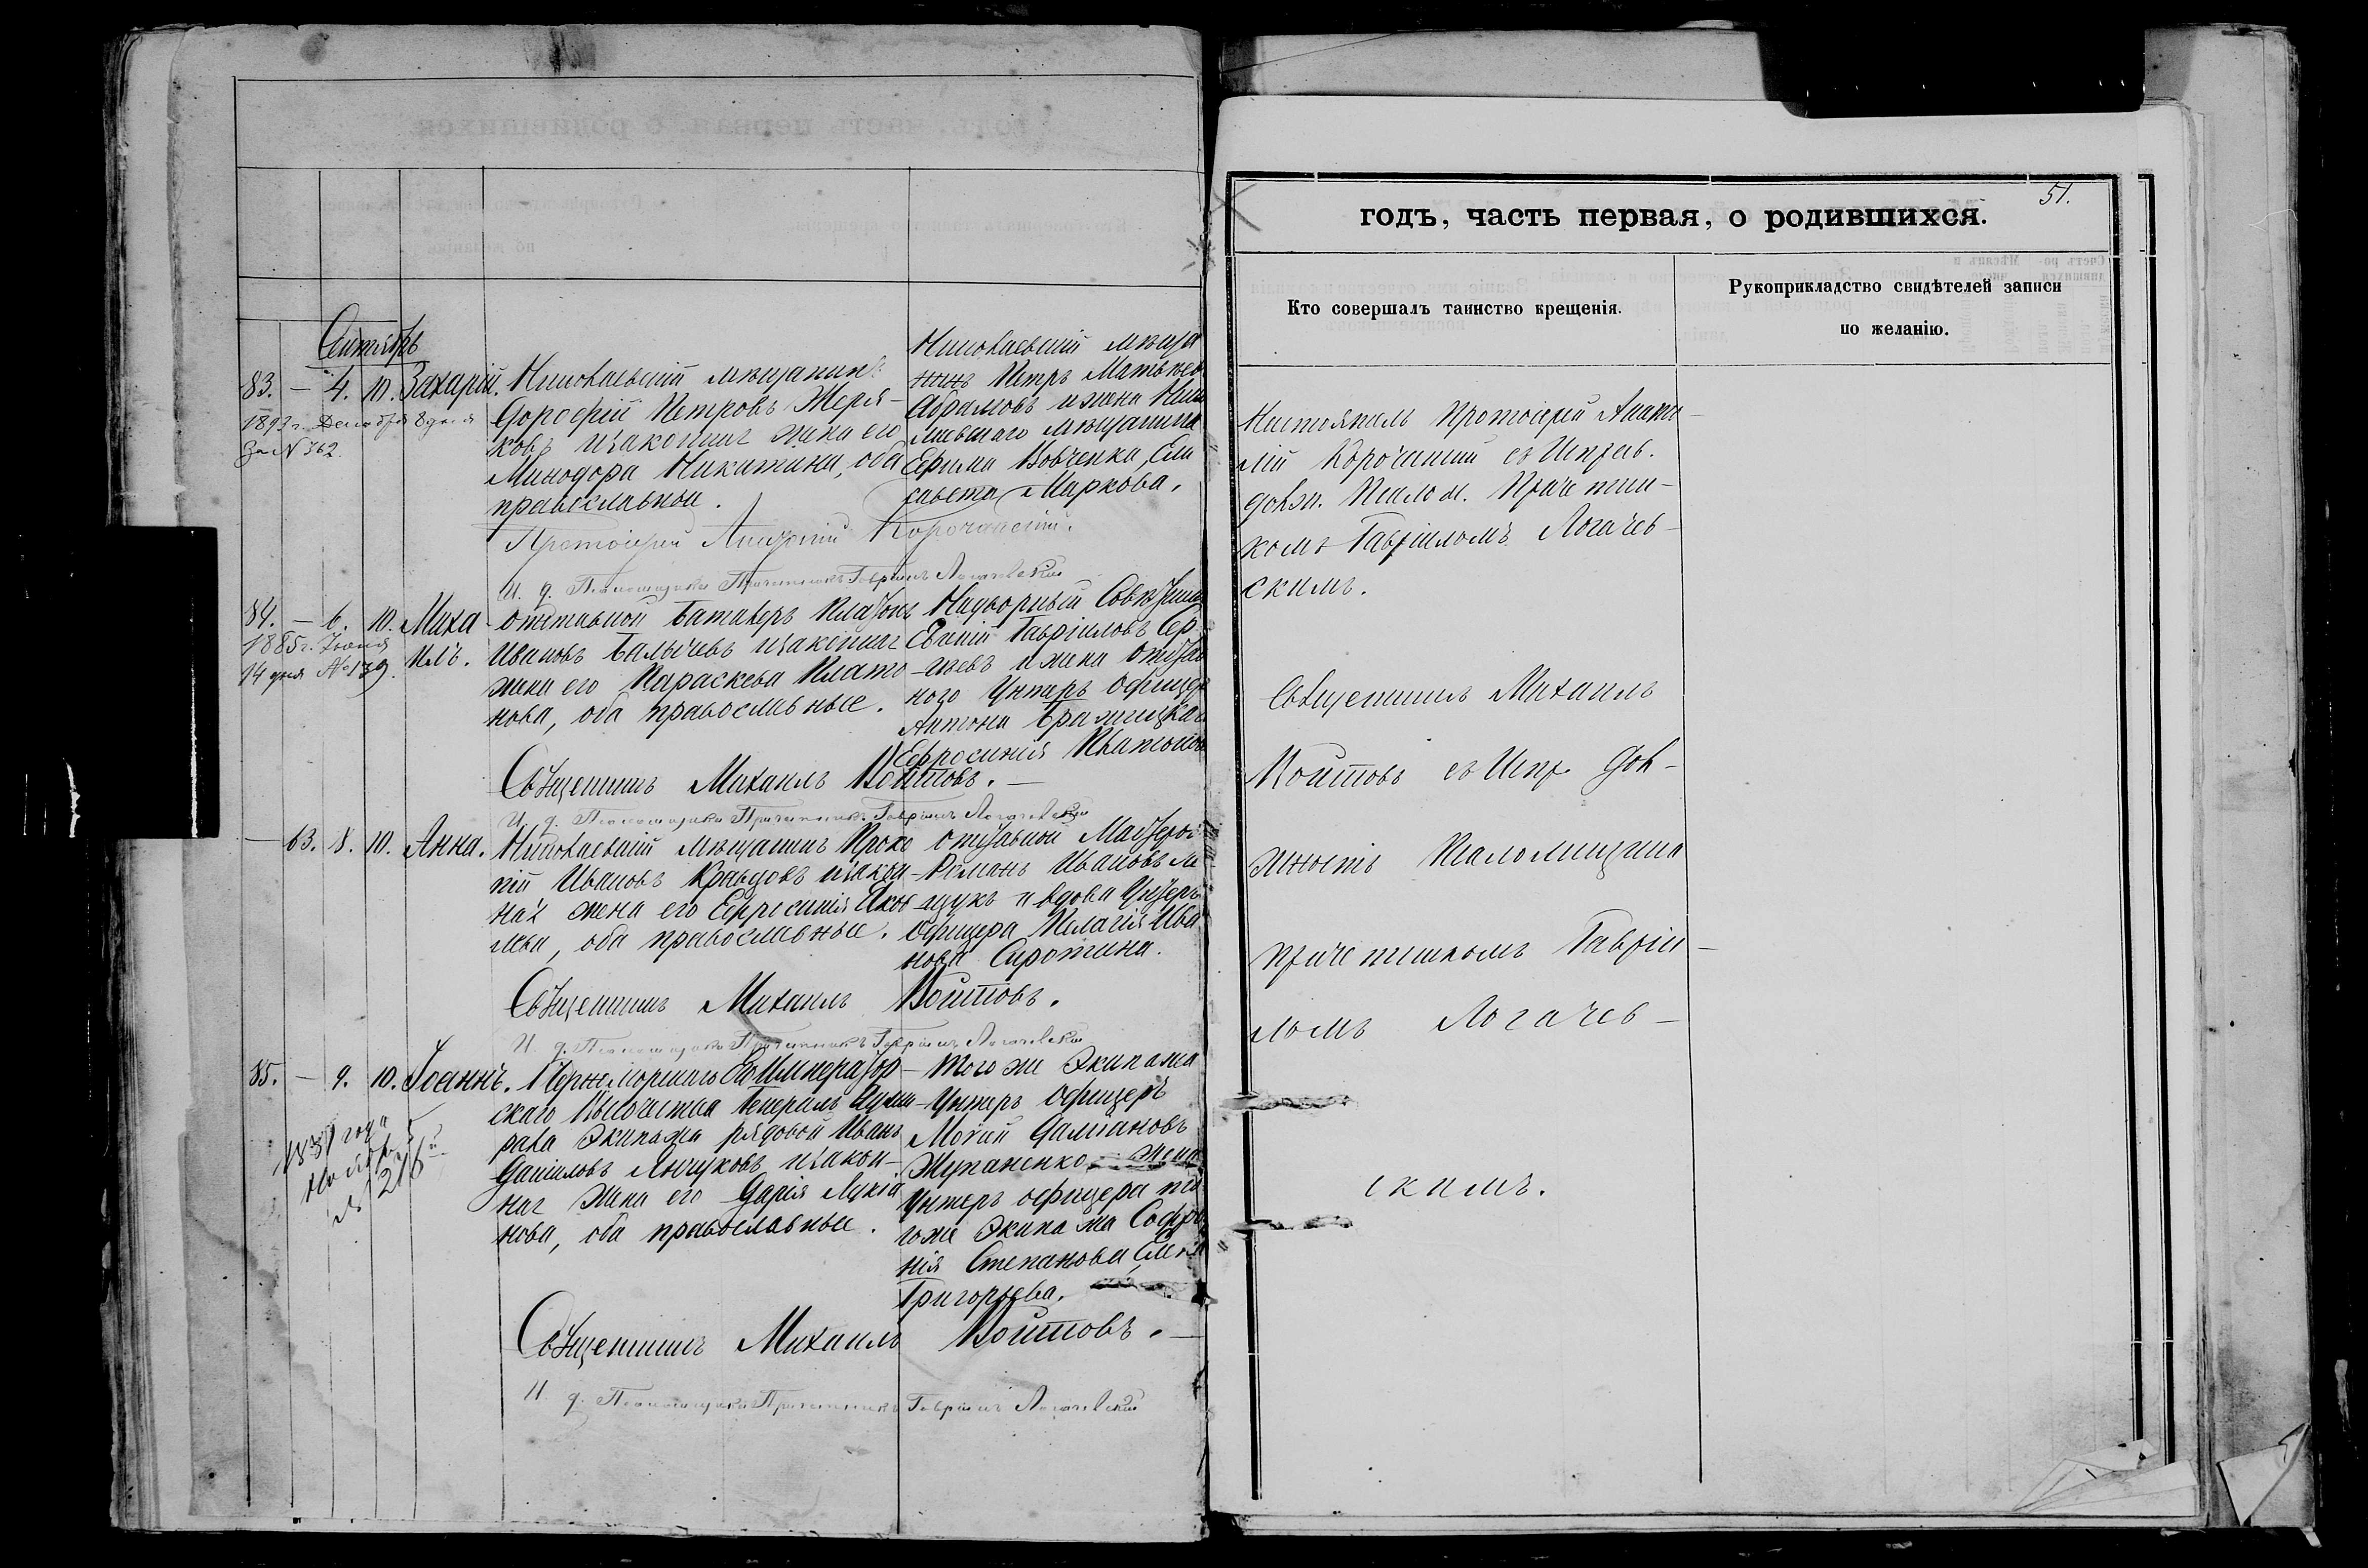 Сентябрь
83. — 4. 10. Захарій.
1893 г. Декабря 8 дня
За № 362.
Николаевскій мѣщанинъ
Дорофей Петровъ Жеря-
ковъ и законная жена его
Минодора Никитина, оба
православные.
Николаевскій мѣща
нинъ Петръ Матвѣев
Абрамовъ и жена Ник
лаевскаго мѣщанина
Ефима Вовченка, Ели
савета Маркова.
Протоіерей Анатолій Корочанскій.
И. д. Псаломщика Причетникъ Гавріилъ Логачевскій
84. — 6. 10. Миха-
илъ.
1885 г. Іюня
14 дня № 139.
отставной Платонъ
Ивановъ и законная
жена его Параскева Плато-
нова, оба православные.
Надворный Совѣтникъ
Евгеній Гавріиловъ Сер-
гѣевъ и жена отстав
ного Унтеръ офицер
Антона
Ефросинія
Священникъ Михаилъ Войтовъ. —
И. д. Псаломщика Причетникъ Гавріилъ Логачевскій
— 63. 8. 10. Анна.
Николаевскій мѣщанинъ Проко
пій Ивановъ Кравцовъ и закон-
ная жена его Ефросинія Яков
лева, оба православные.
отставной
Романъ Ивановъ
и вдова Унтеръ
офицера Пелагія Ива
нова Сиротина.
Священникъ Михаилъ Войтовъ.
И. д. Псаломщика Причетникъ Гавріилъ Логачевскій
85. — 9. 10. Іоаннъ.
года
№ 216
Черноморскаго Его Император-
скаго Высочества Генералъ Адми-
рала Экипажа рядовой Иванъ
Даніиловъ и закон-
ная жена его Дарія Лукіа
нова, оба православные.
того же Экипажа
Унтеръ офицеръ
Моисей Даміановъ
Жупаненко жена
Унтеръ офицера то
гоже Экипажа Софро
нія Степанова
Григорьева.
Священникъ Михаилъ Войтовъ. —
И. д. Псаломщика Причетникъ Гавріилъ Логачевскій
51.
годъ, часть первая, о родившихся.
Кто совершалъ таинство крещенія.
Рукоприкладство свидѣтелей записи
по желанію.
Настоятель Протоіерей Анато-
лій Корочанскій съ Исправ.
должн. Псалом. Причетни-
комъ Гавріиломъ Логачев-
скимъ.
Священникъ Михаилъ
Войтовъ съ Испр. дол-
жность Псаломщика
причетникомъ Гавріи-
ломъ Логачев-
скимъ.